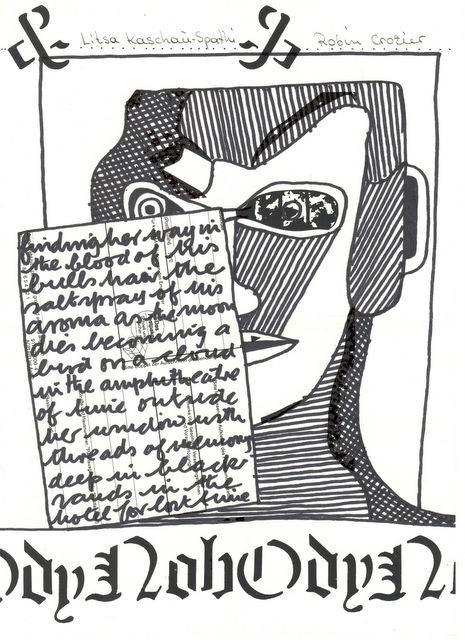 Litsa Kaschau-Spathi Robin Crozier
finding her way in
the blood of his
bulls hair the
saltspray of his
aroma as the moon
dies becoming a
bird on a cloud
in the amphitheatre
of time outside
her window with
threads of memory
deep in black
sands in the
hotel for lost time
OdyNobOdyN